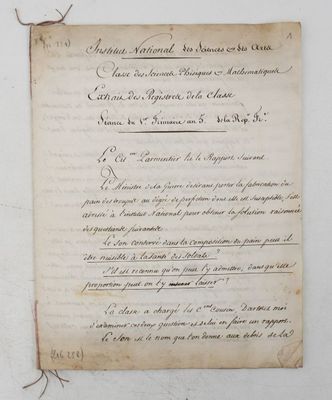 Institut National des Sciences et des Arts
Classe des Sciences Phisiques et Mathematiques
Extrait des Registres de la Classe
Séance du 1er Frimaire an 5e de la Rep. Fse
Le Cit. en Parmentier lit le Rapport suivant
Le Ministre de la Guerre desirant porter la fabrication du
pain des troupes au degré de perfection dont elle est susceptible, s'est
adressé à l'institut National pour obtenir la solution raisonnée
des questions suivantes
Le Son conservé dans la composition du pain peut il
être nuisible à la santé des soldats?
S'il est reconnu qu'on peut l'y admettre, dans quelle
proportion peut on l'y laisser?
La classe a chargé les Cens Cousin, Darcet et moi
d'examiner ces deux questions et de lui en faire un rapport.
Le Son est le nom que l'on donne aux débris de la